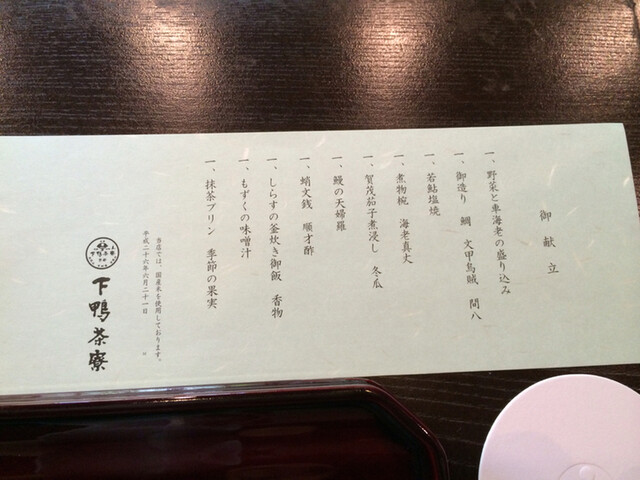 御献立
一、野菜と車海老の盛り込み
一、御造り 鯛 文甲烏賊 間八
一、若鮎塩焼
一、煮物椀 海老真丈
一、賀茂茄子煮浸し 冬瓜
一、鰻の天婦羅
一、蛸文銭 順才酢
一、しらすの釜炊き御飯 香物
一、もずくの味噌汁
一、抹茶プリン 季節の果実
当店では、国産米を使用しております。
平成二十六年六月二十一日
下鴨茶寮